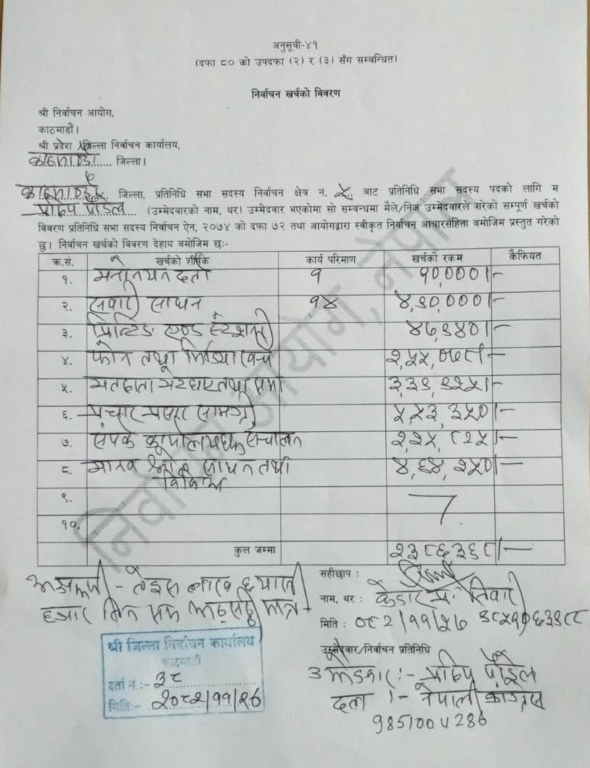 अनुसूची-४१
(दफा ८० को उपदफा (२) र (३) सँग सम्बन्धित)
निर्वाचन खर्चको विवरण
श्री निर्वाचन आयोग,
काठमाडौं।
श्री प्रदेश/जिल्ला निर्वाचन कार्यालय,
काठमाडौं..... जिल्ला।
काठमाडौं जिल्ला, प्रतिनिधि सभा सदस्य निर्वाचन क्षेत्र नं. ५ बाट प्रतिनिधि सभा सदस्य पदको लागि म
प्रदिप पौडेल (उम्मेदवारको नाम, थर) उम्मेदवार भएकोमा सो सम्बन्धमा मैले/निज उम्मेदवारले गरेको सम्पूर्ण खर्चको
विवरण प्रतिनिधि सभा सदस्य निर्वाचन ऐन, २०७४ को दफा ७२ तथा आयोगद्वारा स्वीकृत निर्वाचन आचारसंहिता बमोजिम प्रस्तुत गरेको
छु। निर्वाचन खर्चको विवरण देहाय बमोजिम छः-
क्र.सं. खर्चको शीर्षक कार्य परिमाण खर्चको रकम कैफियत
१. मनोनयन दर्ता १ १०,०००।-
२. सवारी साधन १४ ४,९०,०००।-
३. प्रिन्टिङ एण्ड स्टेशनरी ४७,९४०।-
४. फोन तथा मिडिया खर्च २,५५,०७८।-
५. मतदाता ३,३९,९२५।-
६. प्रचार प्रसार सामग्री ५,५३,३५०।-
७. संपर्क कार्यालय संचालन २,२५,८२५।-
८. मानव श्रोत साधन तथा ४,६४,२५०।-
विविध
९.
१०.
कुल जम्मा २३८६३६८।-
निर्वाचन आयोग, नेपाल
अक्षरूपी - तेइस लाख छयासी
हजार तिन सय अठसठ्ठी मात्र
सहीछाप :
नाम, थर : केदार प्र. तिवारी
मिति : ०८२/११/२७ ९८५१०६३९८८
उम्मेदवार/निर्वाचन प्रतिनिधि
श्री जिल्ला निर्वाचन कार्यालय
काठमाडौं
दर्ता नं:- ३८
मिति:- २०८२/११/२७
उम्मेदवार :- प्रदिप पौडेल
दल :- नेपाली काङ्ग्रेस
9851004286